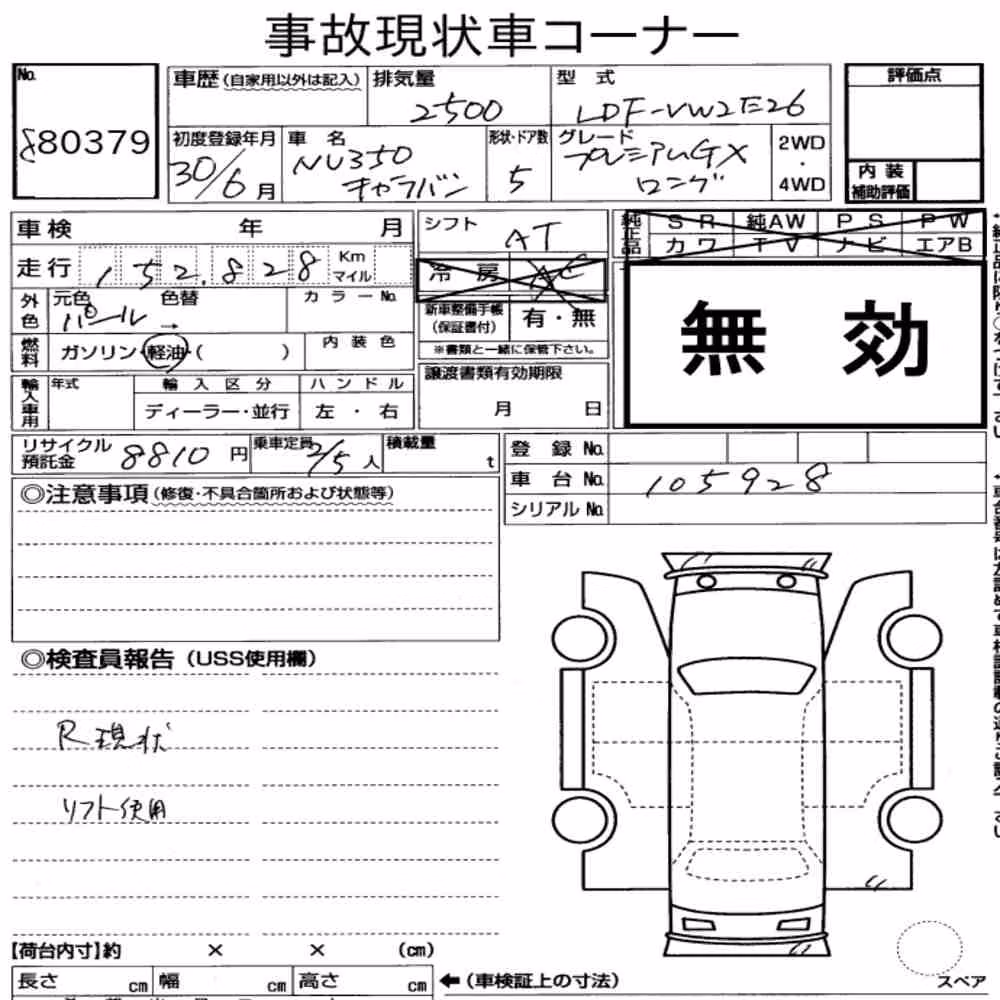 事故現状車コーナー
No.
80379
車歴 (自家用以外は記入)
排気量
2500
型式
LDF-VW2E26
評価点
初度登録年月
30/6月
車名
NV350
キャラバン
形状・ドア数
5
グレード
プレミアムGX
ロング
2WD
・
4WD
内装
補助評価
車検 年 月
シフト
AT
純正品
SR 純AW PS PW
カワ TV ナビ エアB
走行 152,828 Km
マイル
冷房 AC
無効
外色
元色 色替
パール →
カラーNo.
新車整備手帳
(保証書付)
有・無
※書類と一緒に保管下さい。
燃料
ガソリン・軽油・( )
内装色
譲渡書類有効期限
月 日
輸入車用
年式
輸入区分
ディーラー・並行
ハンドル
左・右
リサイクル
預託金
8810円
乗車定員
2/5人
積載量
t
登録No.
車台No. 105928
シリアルNo.
◎注意事項 (修復・不具合箇所および状態等)
◎検査員報告 (USS使用欄)
R現状
リフト使用
【荷台内寸】約 × × (cm)
長さ cm 幅 cm 高さ cm
← (車検証上の寸法)
スペア